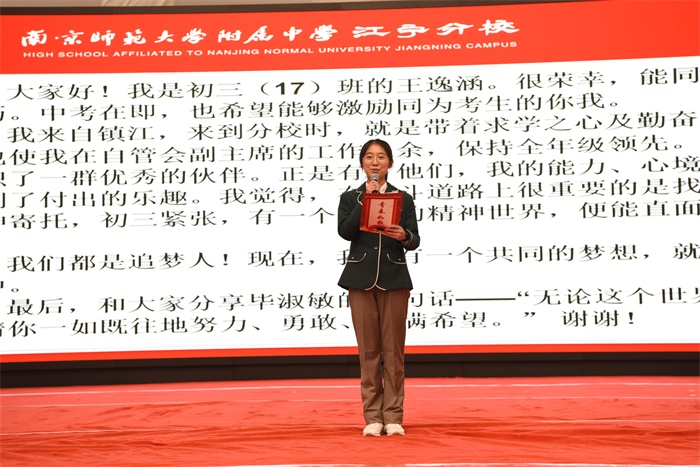 南京师范大学附属中学江宁分校
HIGH SCHOOL AFFILIATED TO NANJING NORMAL UNIVERSITY JIANGNING CAMPUS
大家好！我是初三（17）班的王逸涵。很荣幸，能同
。中考在即，也希望能够激励同为考生的你我。
我来自镇江，来到分校时，就是带着求学之心及勤奋
使我在自管会副主席的工作 余，保持全年级领先。
了一群优秀的伙伴。正是有 他们，我的能力、心境
了付出的乐趣。我觉得， 道路上很重要的是找
寄托，初三紧张，有一个 的精神世界，便能直面
我们都是追梦人！现在，我 有一个共同的梦想，就
最后，和大家分享毕淑敏的 句话——“无论这个世
你一如既往地努力、勇敢、 满希望。”谢谢！